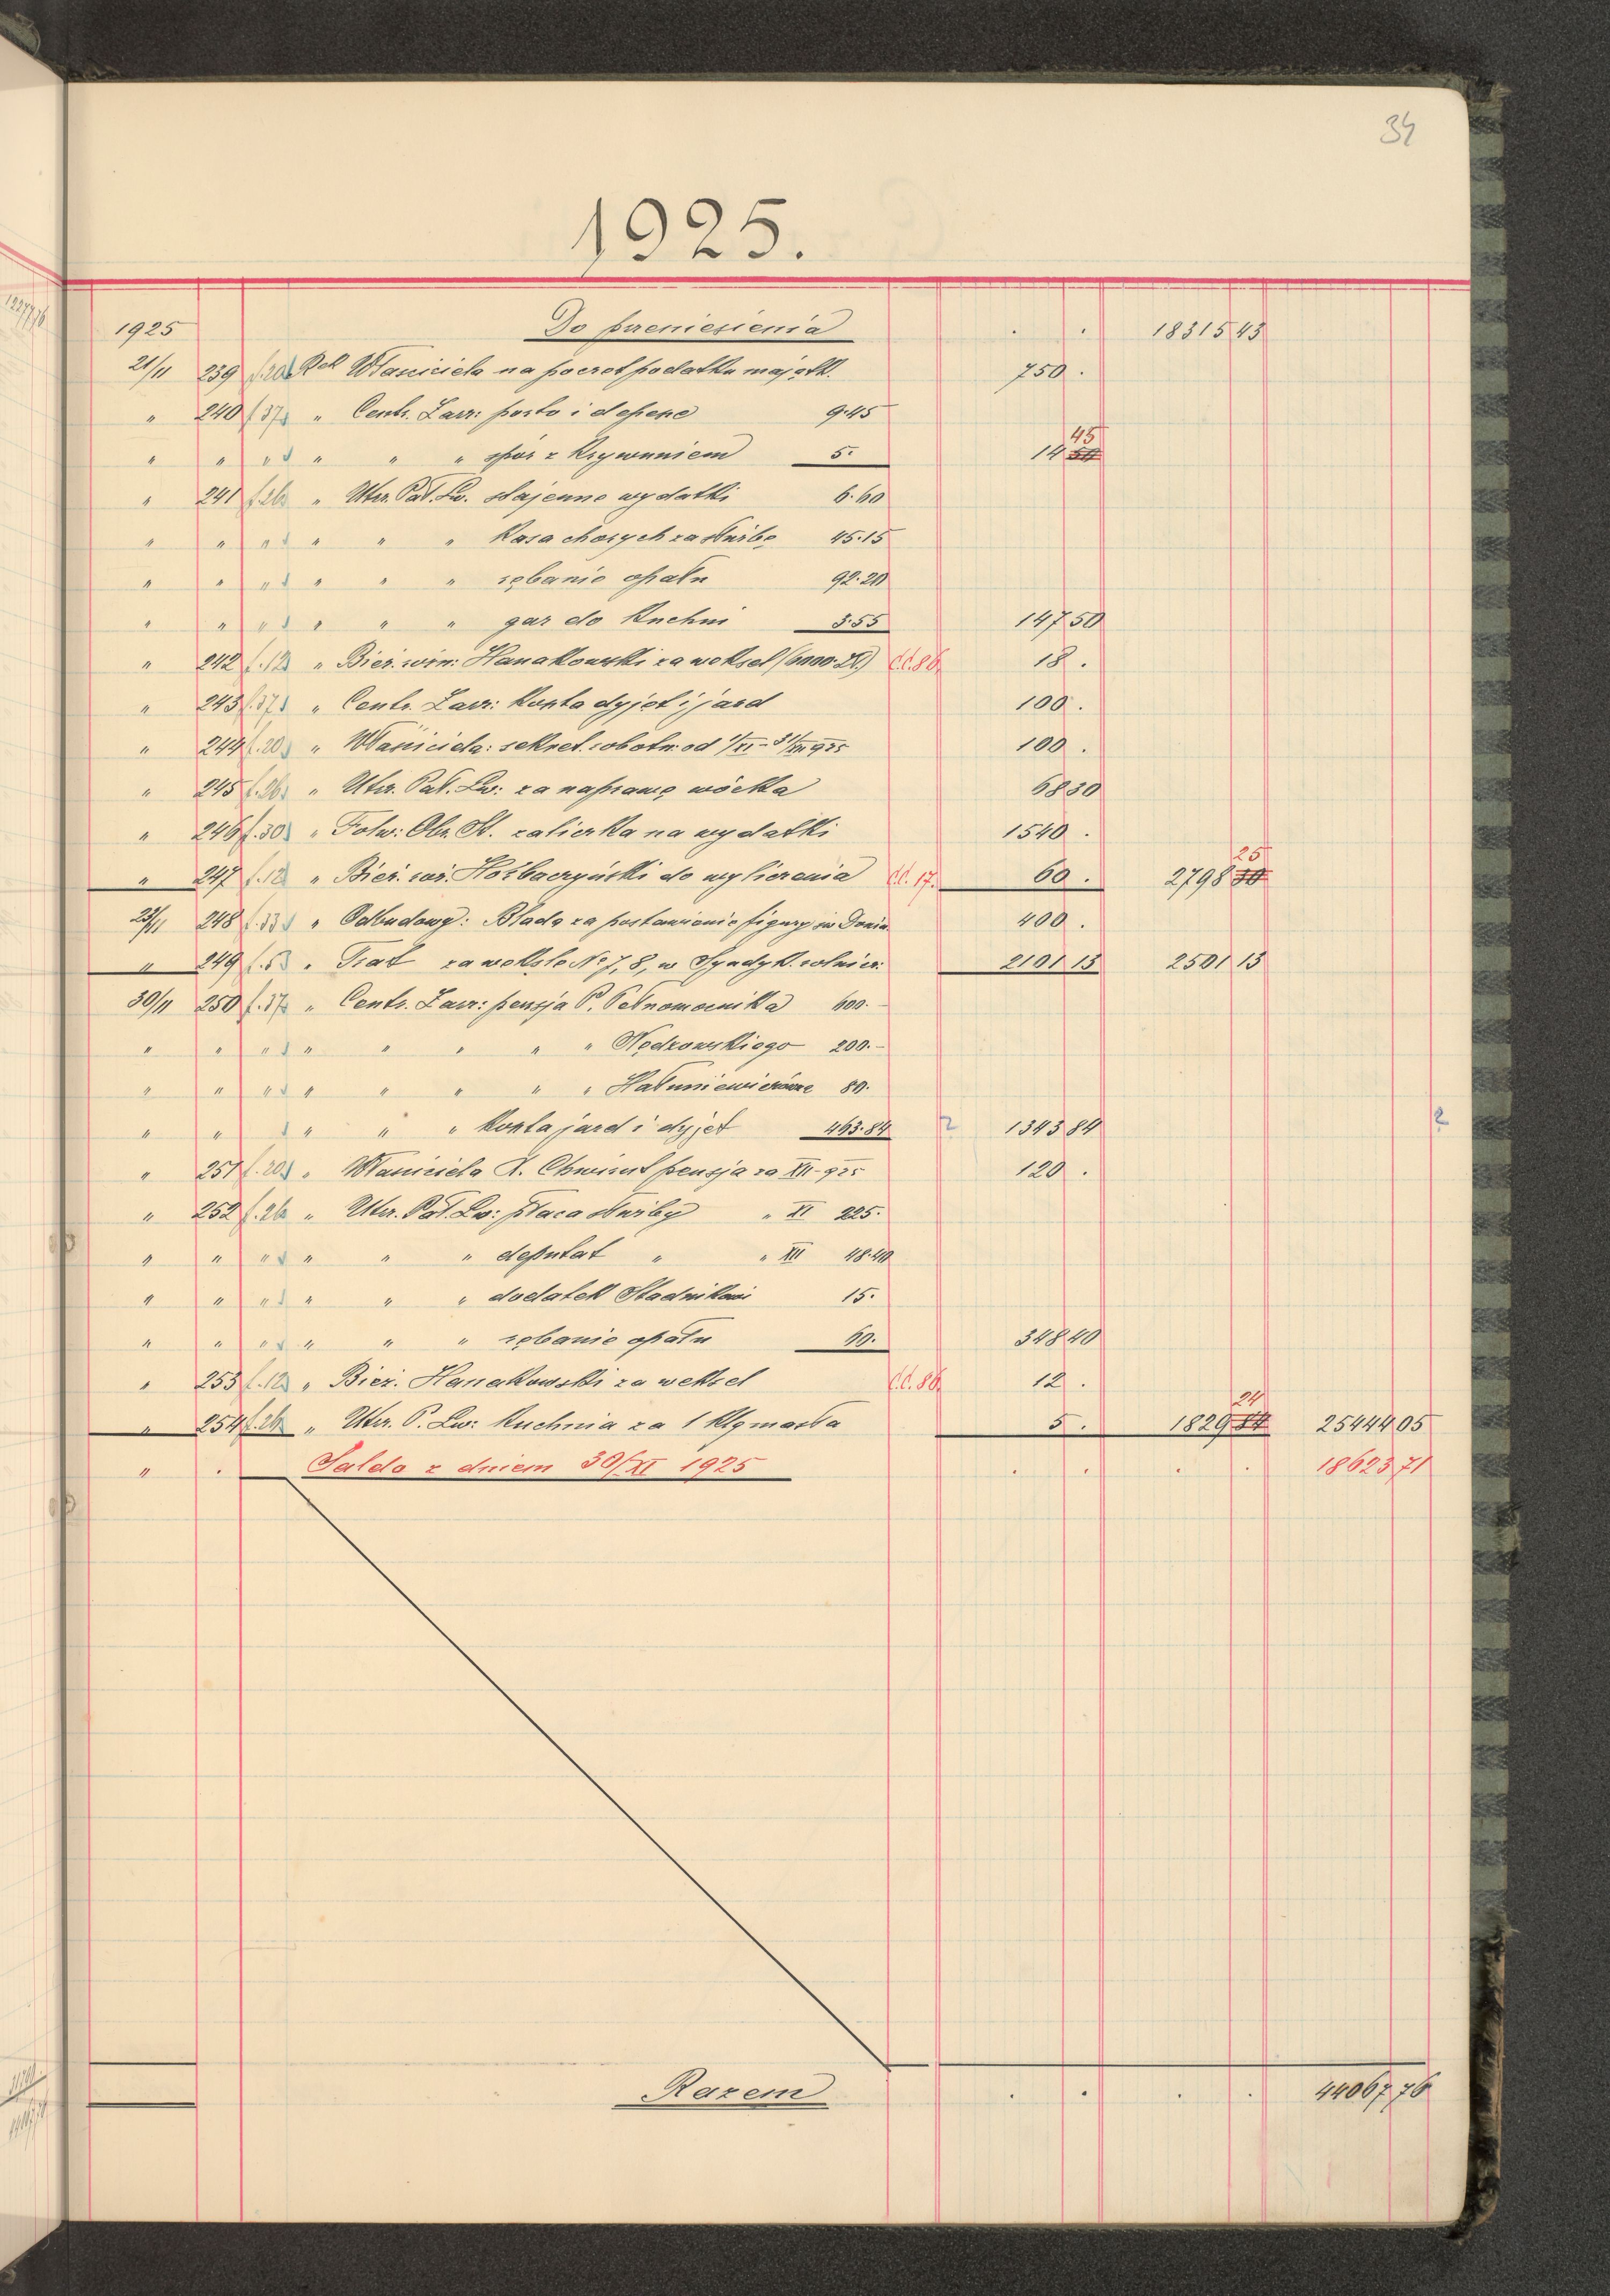 34
1925.
1925 Do przeniesienia . . 18315 43
21/11 239 f. 20 Rek Właściciela na poczet podatku majątk. 750 .
" 240 f. 37 " Centr. Zarz: porto i depesze 9.45
" " " " " " spór z Krywaniem 5. 14 50 45
" 241 f. 26 " Utrz. Pał. Lw. stajenne wydatki 6.60
" " " " " " Kasa chorych za służbę 45.15
" " " " " " rębanie opału 92.20
" " " " " " gaz do kuchni 3.55 147 50
" 242 f. 12 " Bież. win: Hanakowski za weksel (6000 Zł) f.d. 86. 18 .
" 243 f. 37 " Centr. Zarz: koszta dyjet i jazd 100 .
" 244 f. 20 " Właściciela: sekret. robotn: od 1/XI - 31/XII 925 100 .
" 245 f. 26 " Utrz. Pał. Lw: za naprawę wózka 68 30
" 246 f. 30 " Folw: Obr. St. zaliczka na wydatki 1540 .
" 247 f. 12 " Bież. wi. Horbaczyński do wyliczenia f.d. 17. 60 . 2798 30 25
23/11 248 f. 33 " Odbudowy: Blada za postawienie figury św Donia 400 .
" 249 f. 53 " Trat za weksle No 7, 8, w Syndyk. rolnicz: 2101 13 2501 13
30/11 250 f. 37 " Centr. Zarz: pensja P. Pełnomocnika 600.-
" " " " " " " " Nędzowskiego 200.-
" " " " " " " " Hałuniewiczówne 80.
" " " " " koszta jazd i dyjet 463.84 ? 1343 84 ?
" 251 f. 20 " Właściciela A. Chwiszt pensja za XII-925 120 .
" 252 f. 26 " Utrz. Pał. Lw: płaca służby " XI 225.
" " " " " " deputat " " XII 48.40
" " " " " " dodatek Stadnikowi 15.
" " " " " " rębanie opału 60. 348 40
" 253 f. 12 " Bież. Hanakowski za weksel f.d. 86. 12 .
" 254 f. 26 " Utrz. P. Lw: kuchnia za 1 klg masła 5 . 1829 84 24 25444 05
" . Saldo z dniem 30/XI 1925 . . . . 18623 71
Razem . . . . 44067 76